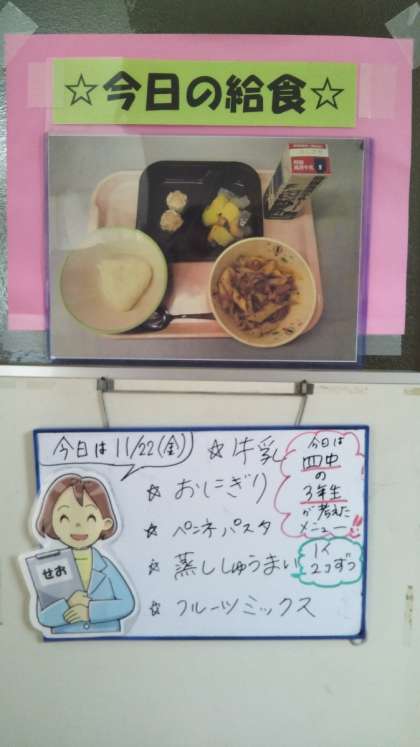 ☆今日の給食☆
今日は11/22(金)
☆牛乳
☆おにぎり
☆ペンネパスタ
☆蒸ししゅうまい
☆フルーツミックス
今日は
四中
の
3年生
が考えた
メニュー!!
1人
2コずつ
せお